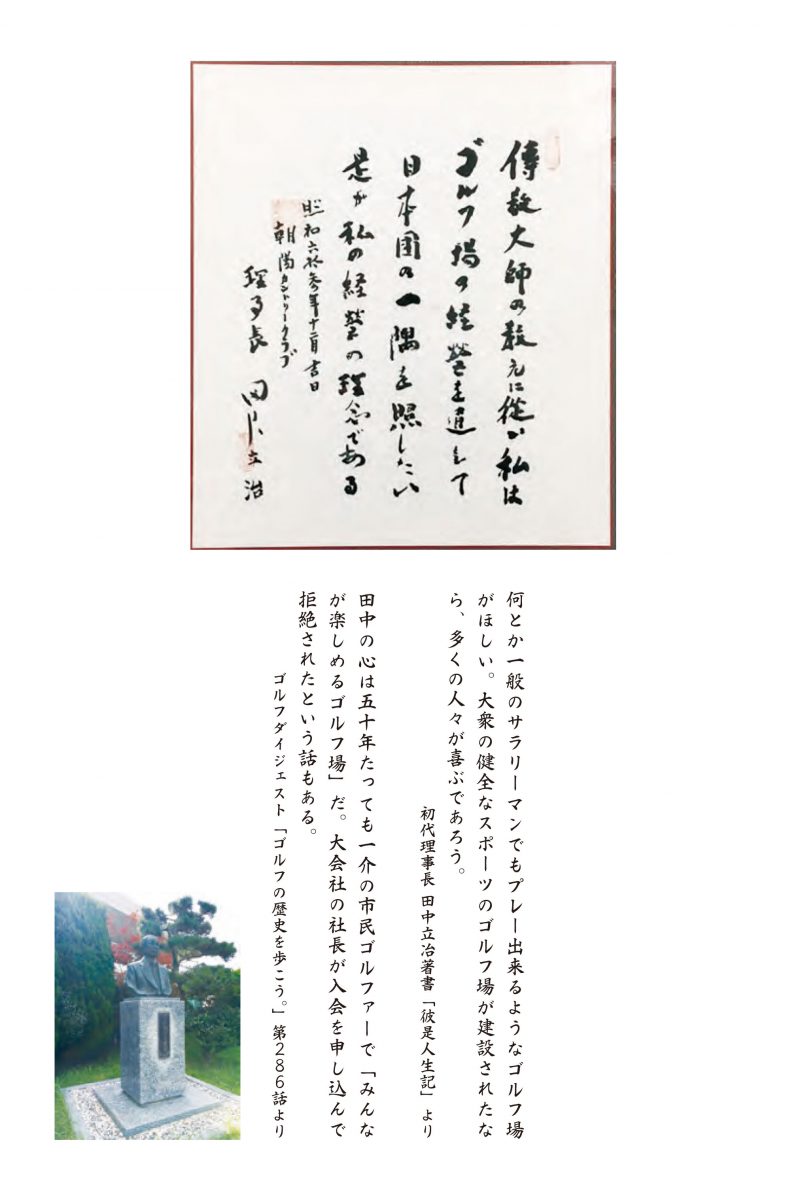 傳教大師の教えに従い私は
ゴルフ場の経営を通して
日本国の一隅を照したい
是が私の経営の理念である
昭和六拾参年十二月吉日
朝陽カントリークラブ
理事長 田中立治
何とか一般のサラリーマンでもプレー出来るようなゴルフ場
がほしい。大衆の健全なスポーツのゴルフ場が建設されたな
ら、多くの人々が喜ぶであろう。
初代理事長 田中立治著書「彼是人生記」より
田中の心は五十年たっても一介の市民ゴルファーで「みんな
が楽しめるゴルフ場」だ。大会社の社長が入会を申し込んで
拒絶されたという話もある。
ゴルフダイジェスト「ゴルフの歴史を歩こう。」第286話より